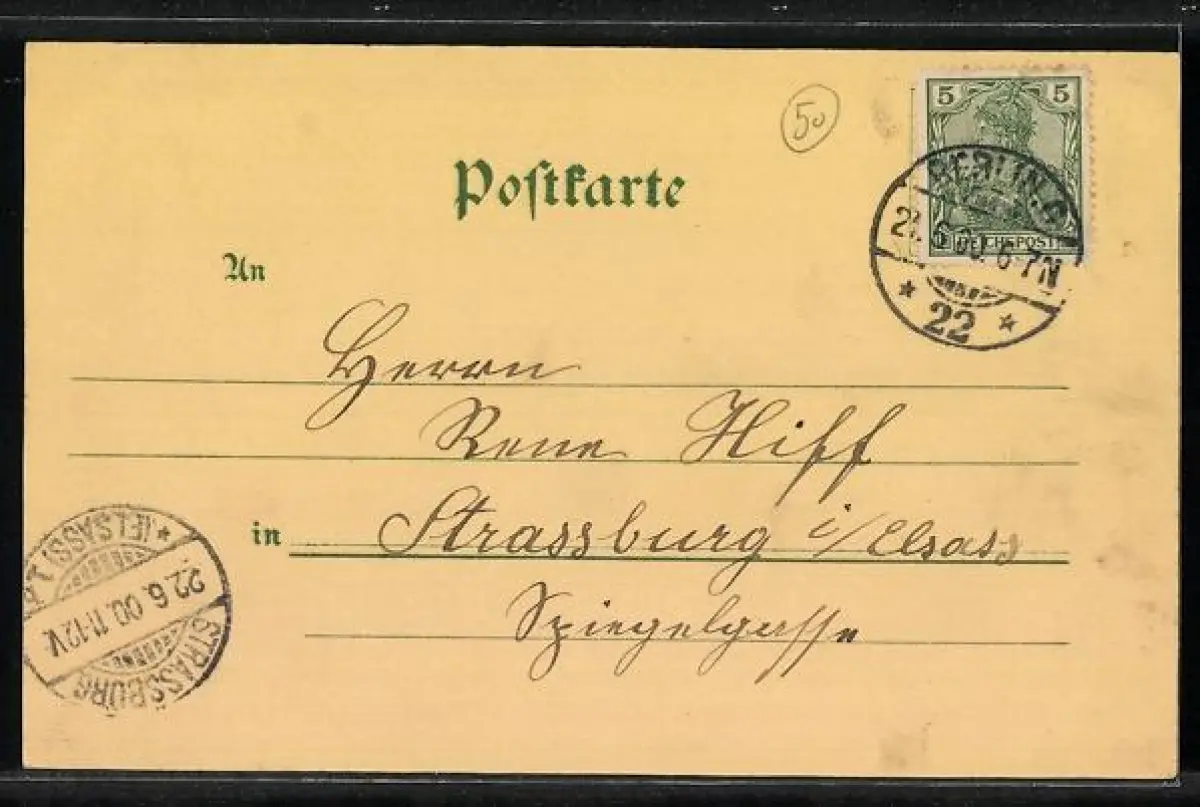 50
5 5
REICHSPOST
BERLIN. C
21.6.00. 6-7N
* 22 *
Postkarte
An
Herrn
Rene Hiff
in Strassburg i/Elsass
Spiegelgasse
STRASSBURG
22.6.00.11-12V.
* (ELSASS)